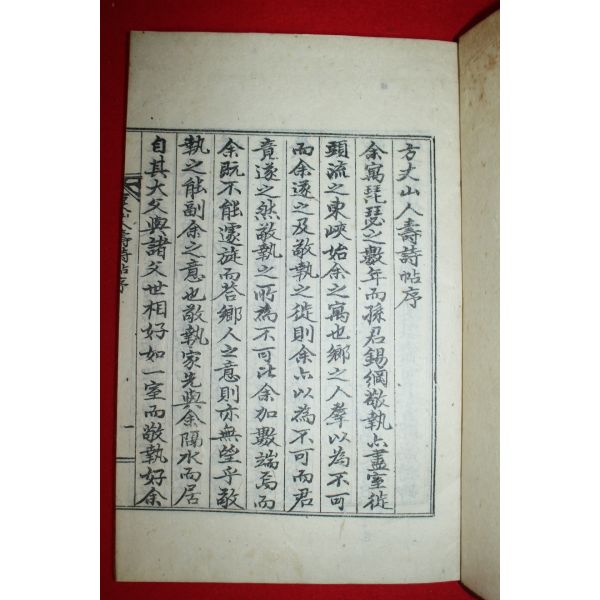 方丈山人壽詩帖序
余寓琵瑟之數年而孫君錫綱敬執亦盡室從
頭流之東峽始余之寓也鄉之人羣以為不可
而余遂之及敬執之從則余亦以為不可而君
竟遂之然敬執之所為不可比余加數端焉而
余既不能遽旋而答鄉人之意則亦無望乎敬
執之能副余之意也敬執家先與余隔水而居
自其大父與諸父世相好如一室而敬執好余
山人壽詩帖序
一